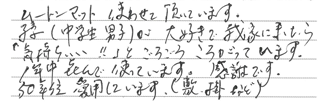 ムートンマット使わせて頂いています。
孫(中学生男子)が大好きで我家に来たら
「気持ちいい!!」とごろごろころがっています。
年中喜んで使っています。感謝です。
30年位愛用しています。(敷・掛など)